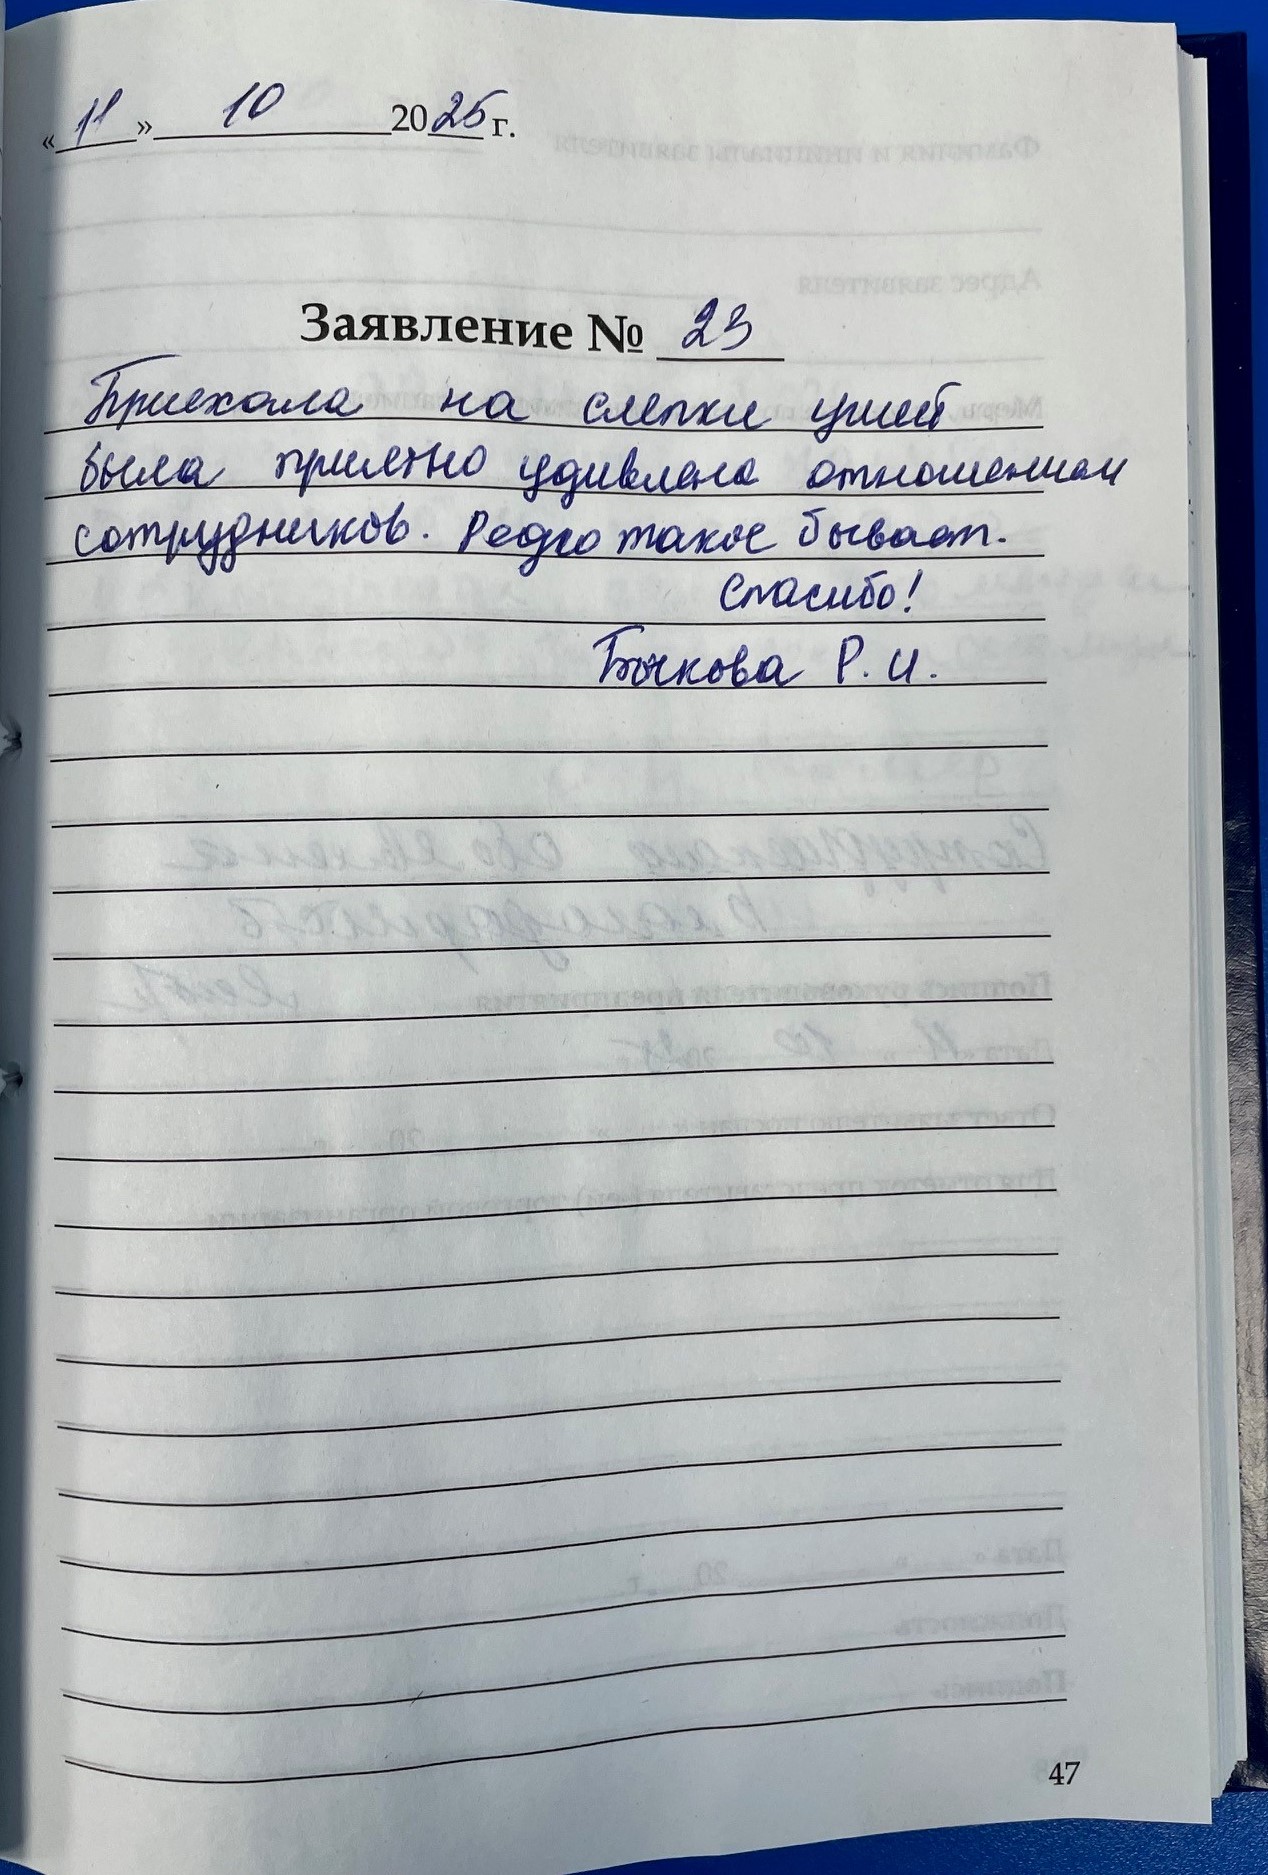 «11» 10 2025 г.
Заявление № 23
Приехала на слепки ушей
была приятно удивлена отношением
сотрудников. Редко такое бывает.
Спасибо!
Бычкова Р. И.
47